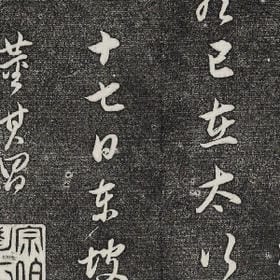 已在太行
十七日東坡
董其昌